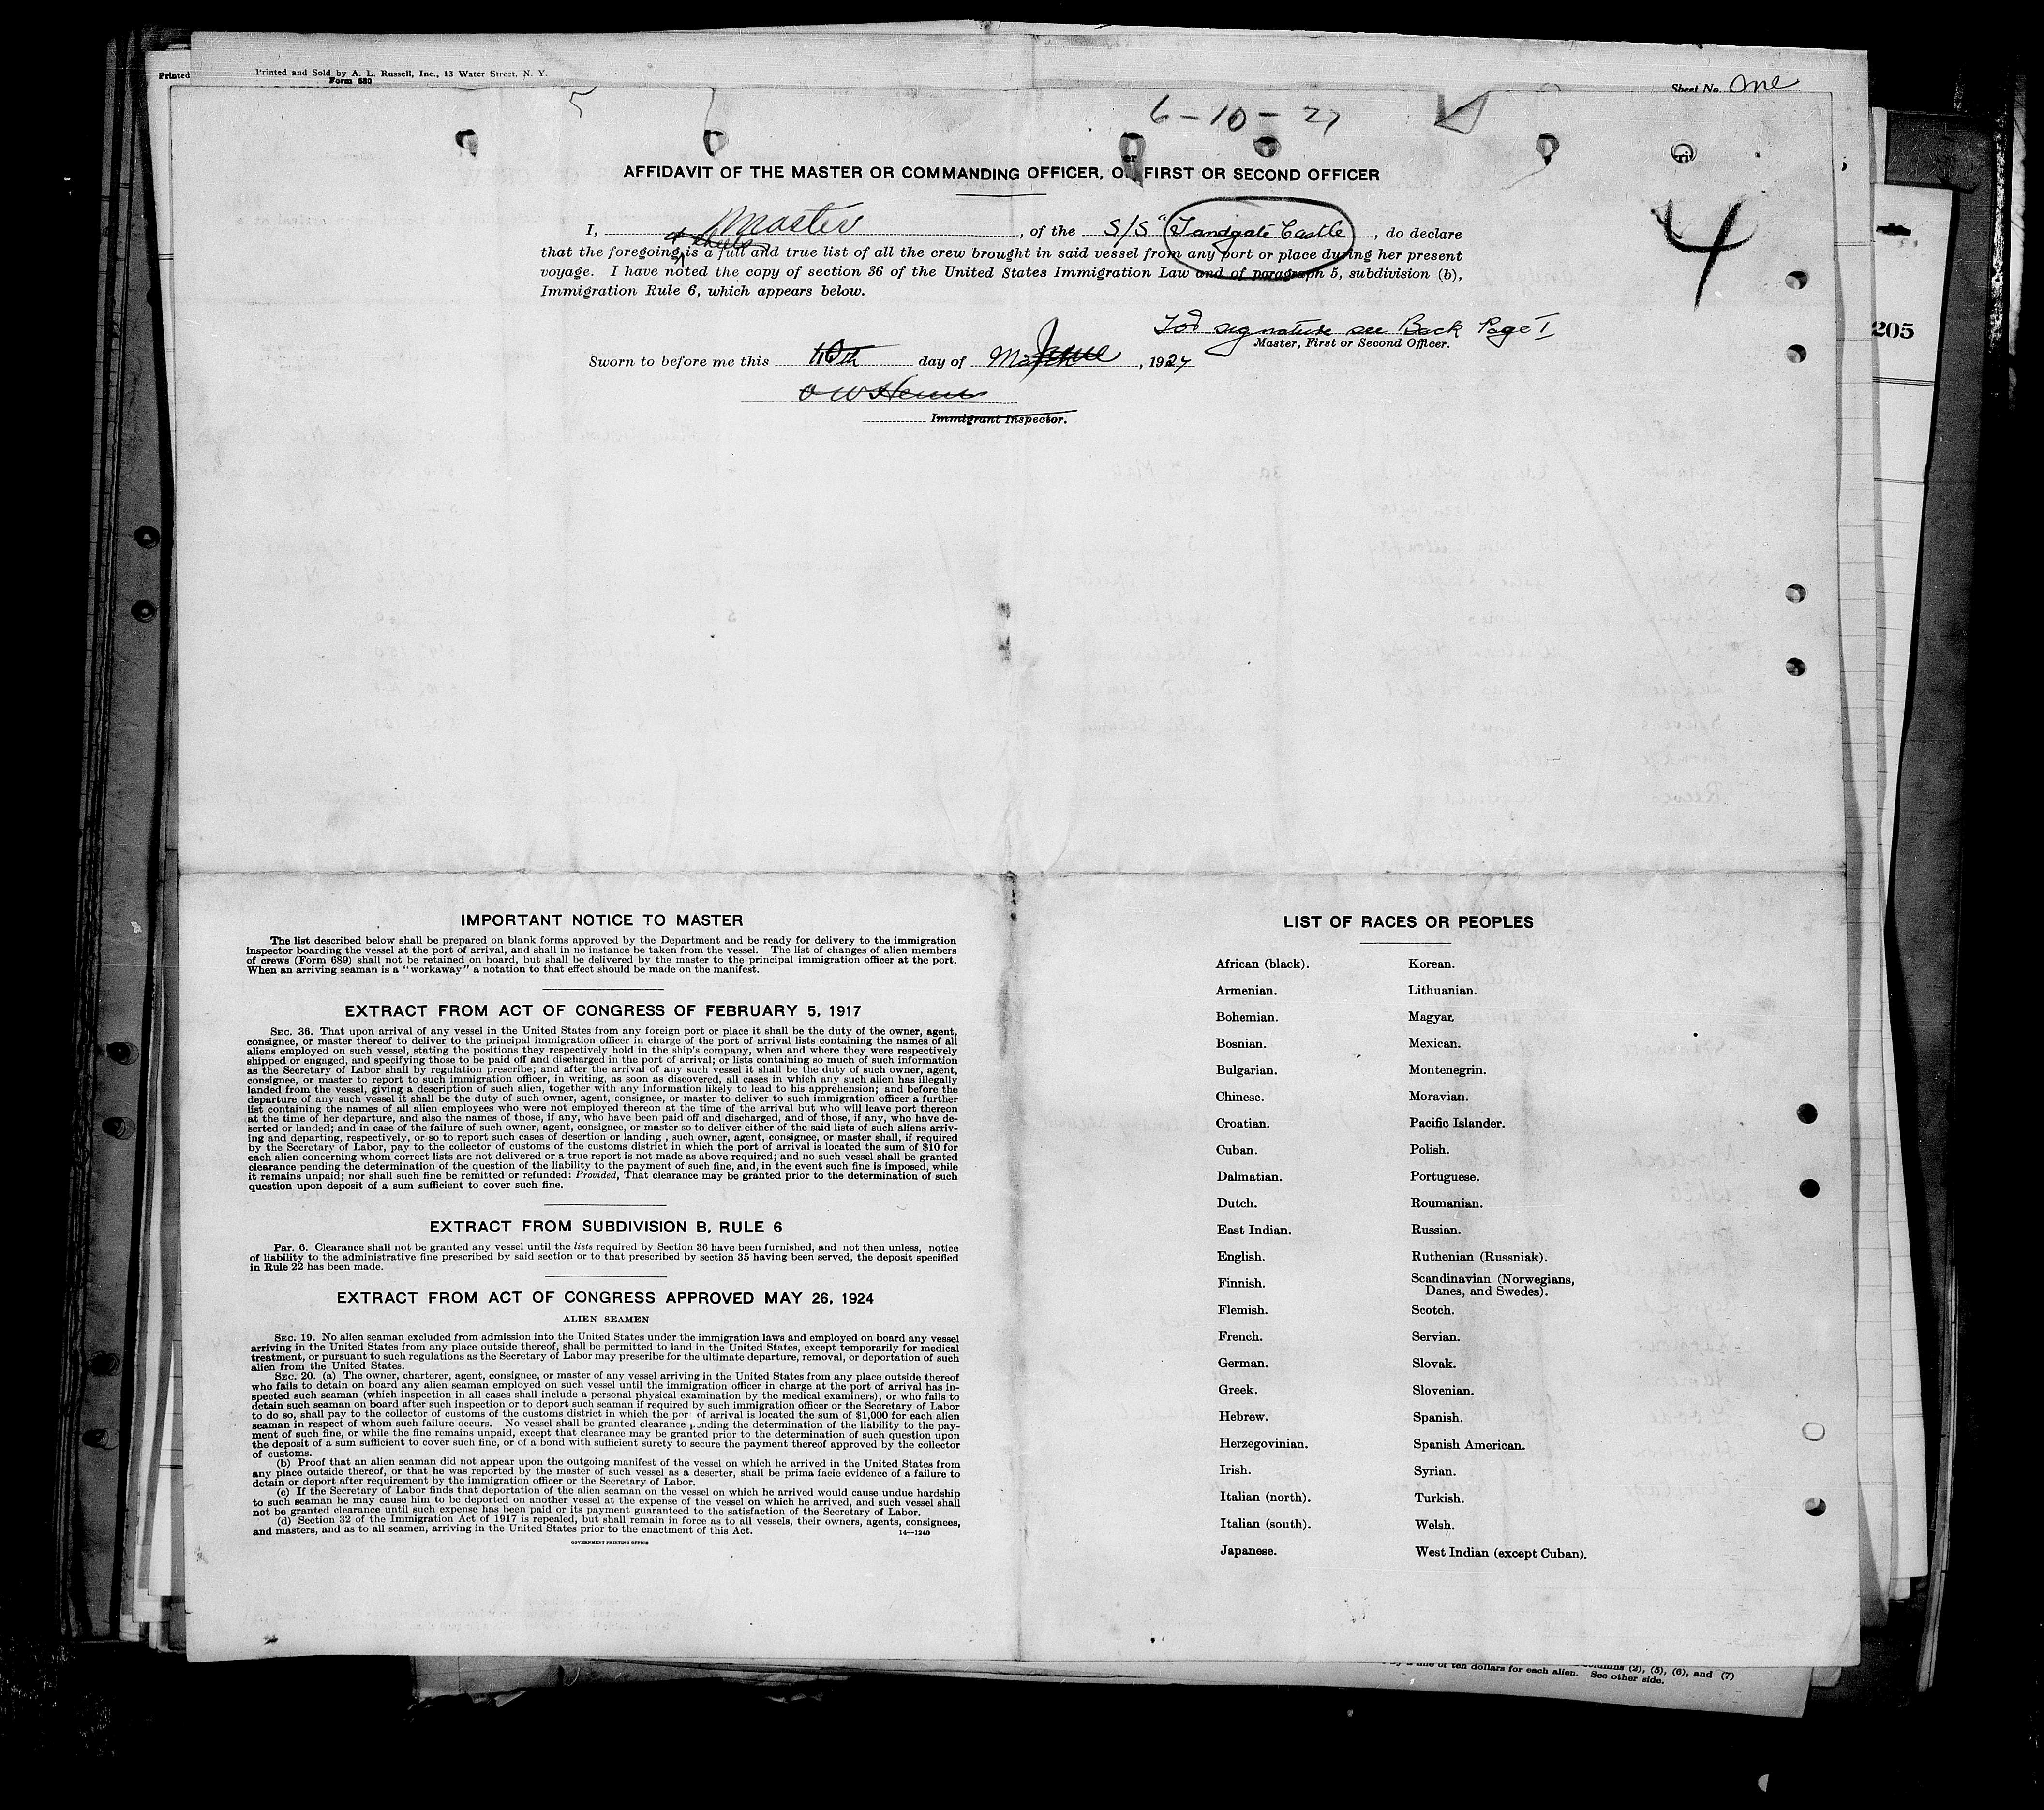 Printed
Printed and Sold by A. L. Russell, Inc., 13 Water Street, N. Y.
Form 680
Sheet No. One
6-10-27
AFFIDAVIT OF THE MASTER OR COMMANDING OFFICER, OR FIRST OR SECOND OFFICER
4
I, Master, of the S/S "Sandgate Castle, do declare
4 sheets
that the foregoing is a full and true list of all the crew brought in said vessel from any port or place during her present
voyage. I have noted the copy of section 36 of the United States Immigration Law and of paragraph 5, subdivision (b),
Immigration Rule 6, which appears below.
For signature see Back Page I
Master, First or Second Officer.
205
Sworn to before me this 10th day of March June, 1927
Immigrant Inspector.
IMPORTANT NOTICE TO MASTER
The list described below shall be prepared on blank forms approved by the Department and be ready for delivery to the immigration
inspector boarding the vessel at the port of arrival, and shall in no instance be taken from the vessel. The list of changes of alien members
of crews (Form 689) shall not be retained on board, but shall be delivered by the master to the principal immigration officer at the port.
When an arriving seaman is a "workaway" a notation to that effect should be made on the manifest.
EXTRACT FROM ACT OF CONGRESS OF FEBRUARY 5, 1917
SEC. 36. That upon arrival of any vessel in the United States from any foreign port or place it shall be the duty of the owner, agent,
consignee, or master thereof to deliver to the principal immigration officer in charge of the port of arrival lists containing the names of all
aliens employed on such vessel, stating the positions they respectively hold in the ship's company, when and where they were respectively
shipped or engaged, and specifying those to be paid off and discharged in the port of arrival; or lists containing so much of such information
as the Secretary of Labor shall by regulation prescribe; and after the arrival of any such vessel it shall be the duty of such owner, agent,
consignee, or master to report to such immigration officer, in writing, as soon as discovered, all cases in which any such alien has illegally
landed from the vessel, giving a description of such alien, together with any information likely to lead to his apprehension; and before the
departure of any such vessel it shall be the duty of such owner, agent, consignee, or master to deliver to such immigration officer a further
list containing the names of all alien employees who were not employed thereon at the time of the arrival but who will leave port thereon
at the time of her departure, and also the names of those, if any, who have been paid off and discharged, and of those, if any, who have de-
serted or landed; and in case of the failure of such owner, agent, consignee, or master so to deliver either of the said lists of such aliens arriv-
ing and departing, respectively, or so to report such cases of desertion or landing , such owner, agent, consignee, or master shall, if required
by the Secretary of Labor, pay to the collector of customs of the customs district in which the port of arrival is located the sum of $10 for
each alien concerning whom correct lists are not delivered or a true report is not made as above required; and no such vessel shall be granted
clearance pending the determination of the question of the liability to the payment of such fine, and, in the event such fine is imposed, while
it remains unpaid; nor shall such fine be remitted or refunded: Provided, That clearance may be granted prior to the determination of such
question upon deposit of a sum sufficient to cover such fine.
EXTRACT FROM SUBDIVISION B, RULE 6
Par. 6. Clearance shall not be granted any vessel until the lists required by Section 36 have been furnished, and not then unless, notice
of liability to the administrative fine prescribed by said section or to that prescribed by section 35 having been served, the deposit specified
in Rule 22 has been made.
EXTRACT FROM ACT OF CONGRESS APPROVED MAY 26, 1924
ALIEN SEAMEN
SEC. 19. No alien seaman excluded from admission into the United States under the immigration laws and employed on board any vessel
arriving in the United States from any place outside thereof, shall be permitted to land in the United States, except temporarily for medical
treatment, or pursuant to such regulations as the Secretary of Labor may prescribe for the ultimate departure, removal, or deportation of such
alien from the United States.
SEC. 20. (a) The owner, charterer, agent, consignee, or master of any vessel arriving in the United States from any place outside thereof
who fails to detain on board any alien seaman employed on such vessel until the immigration officer in charge at the port of arrival has in-
spected such seaman (which inspection in all cases shall include a personal physical examination by the medical examiners), or who fails to
detain such seaman on board after such inspection or to deport such seaman if required by such immigration officer or the Secretary of Labor
to do so, shall pay to the collector of customs of the customs district in which the port of arrival is located the sum of $1,000 for each alien
seaman in respect of whom such failure occurs. No vessel shall be granted clearance pending the determination of the liability to the pay-
ment of such fine, or while the fine remains unpaid, except that clearance may be granted prior to the determination of such question upon
the deposit of a sum sufficient to cover such fine, or of a bond with sufficient surety to secure the payment thereof approved by the collector
of customs.
(b) Proof that an alien seaman did not appear upon the outgoing manifest of the vessel on which he arrived in the United States from
any place outside thereof, or that he was reported by the master of such vessel as a deserter, shall be prima facie evidence of a failure to
detain or deport after requirement by the immigration officer or the Secretary of Labor.
(c) If the Secretary of Labor finds that deportation of the alien seaman on the vessel on which he arrived would cause undue hardship
to such seaman he may cause him to be deported on another vessel at the expense of the vessel on which he arrived, and such vessel shall
not be granted clearance until such expense has been paid or its payment guaranteed to the satisfaction of the Secretary of Labor.
(d) Section 32 of the Immigration Act of 1917 is repealed, but shall remain in force as to all vessels, their owners, agents, consignees,
and masters, and as to all seamen, arriving in the United States prior to the enactment of this Act.
14—1240
GOVERNMENT PRINTING OFFICE
LIST OF RACES OR PEOPLES
African (black).
Armenian.
Bohemian.
Bosnian.
Bulgarian.
Chinese.
Croatian.
Cuban.
Dalmatian.
Dutch.
East Indian.
English.
Finnish.
Flemish.
French.
German.
Greek.
Hebrew.
Herzegovinian.
Irish.
Italian (north).
Italian (south).
Japanese.
Korean.
Lithuanian.
Magyar.
Mexican.
Montenegrin.
Moravian.
Pacific Islander.
Polish.
Portuguese.
Roumanian.
Russian.
Ruthenian (Russniak).
Scandinavian (Norwegians,
Danes, and Swedes).
Scotch.
Servian.
Slovak.
Slovenian.
Spanish.
Spanish American.
Syrian.
Turkish.
Welsh.
West Indian (except Cuban).
columns (2), (5), (6), and (7)
by a fine of ten dollars for each alien. See other side.